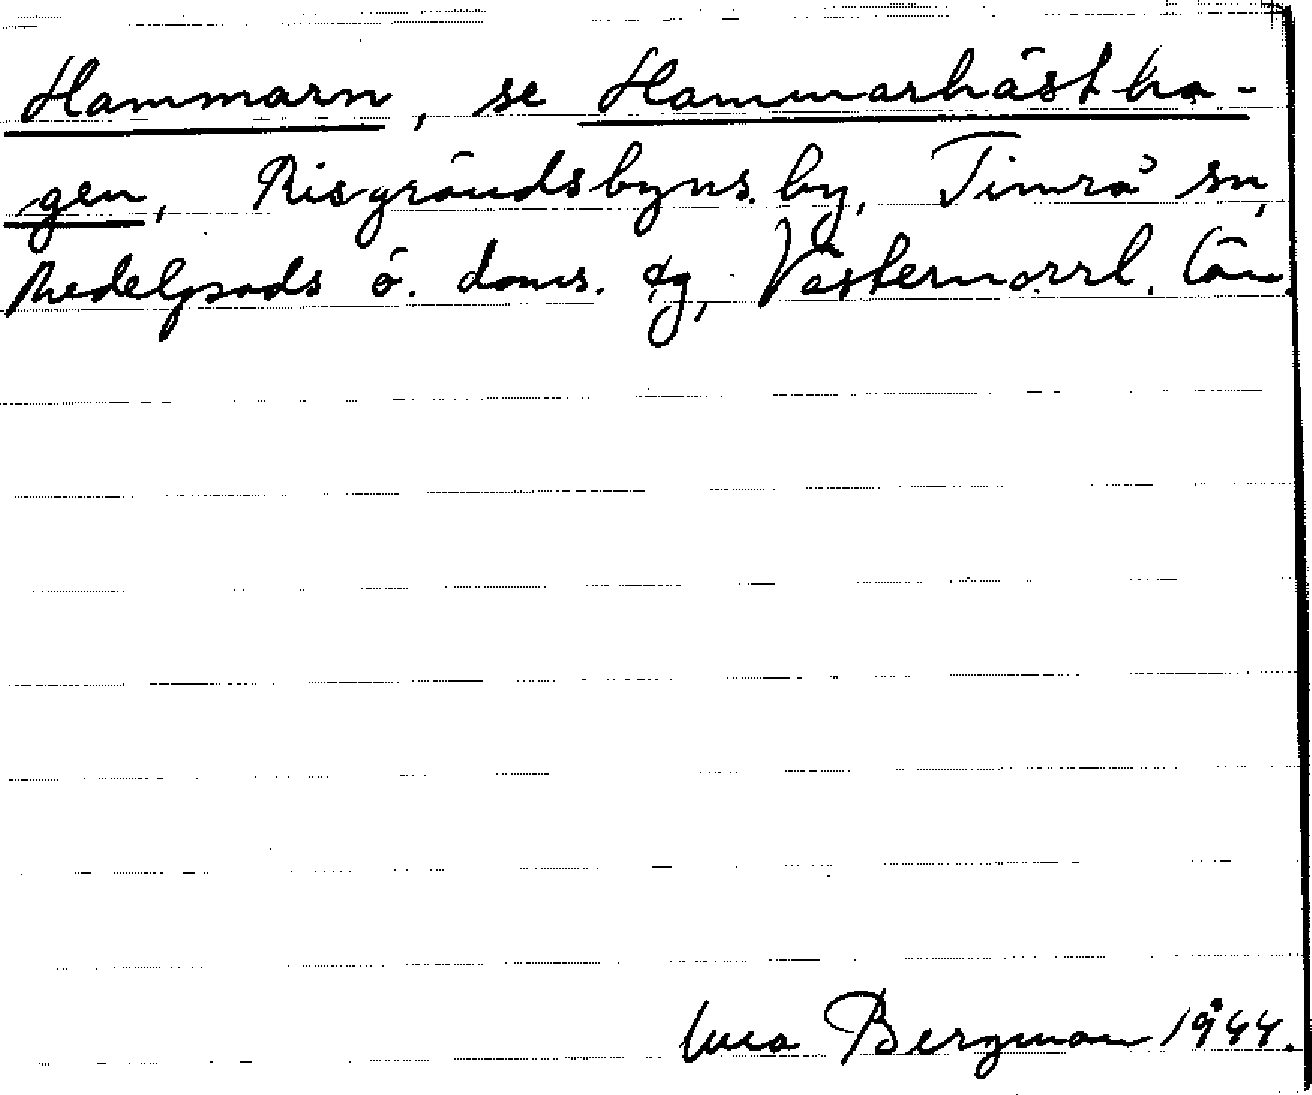 Hammarn, se Hammarhästha-
gen, Risgrändsbyns by, Timrå sn,
Medelpads ö. doms. dg, Västernorrl. län.
Bergman 1944.